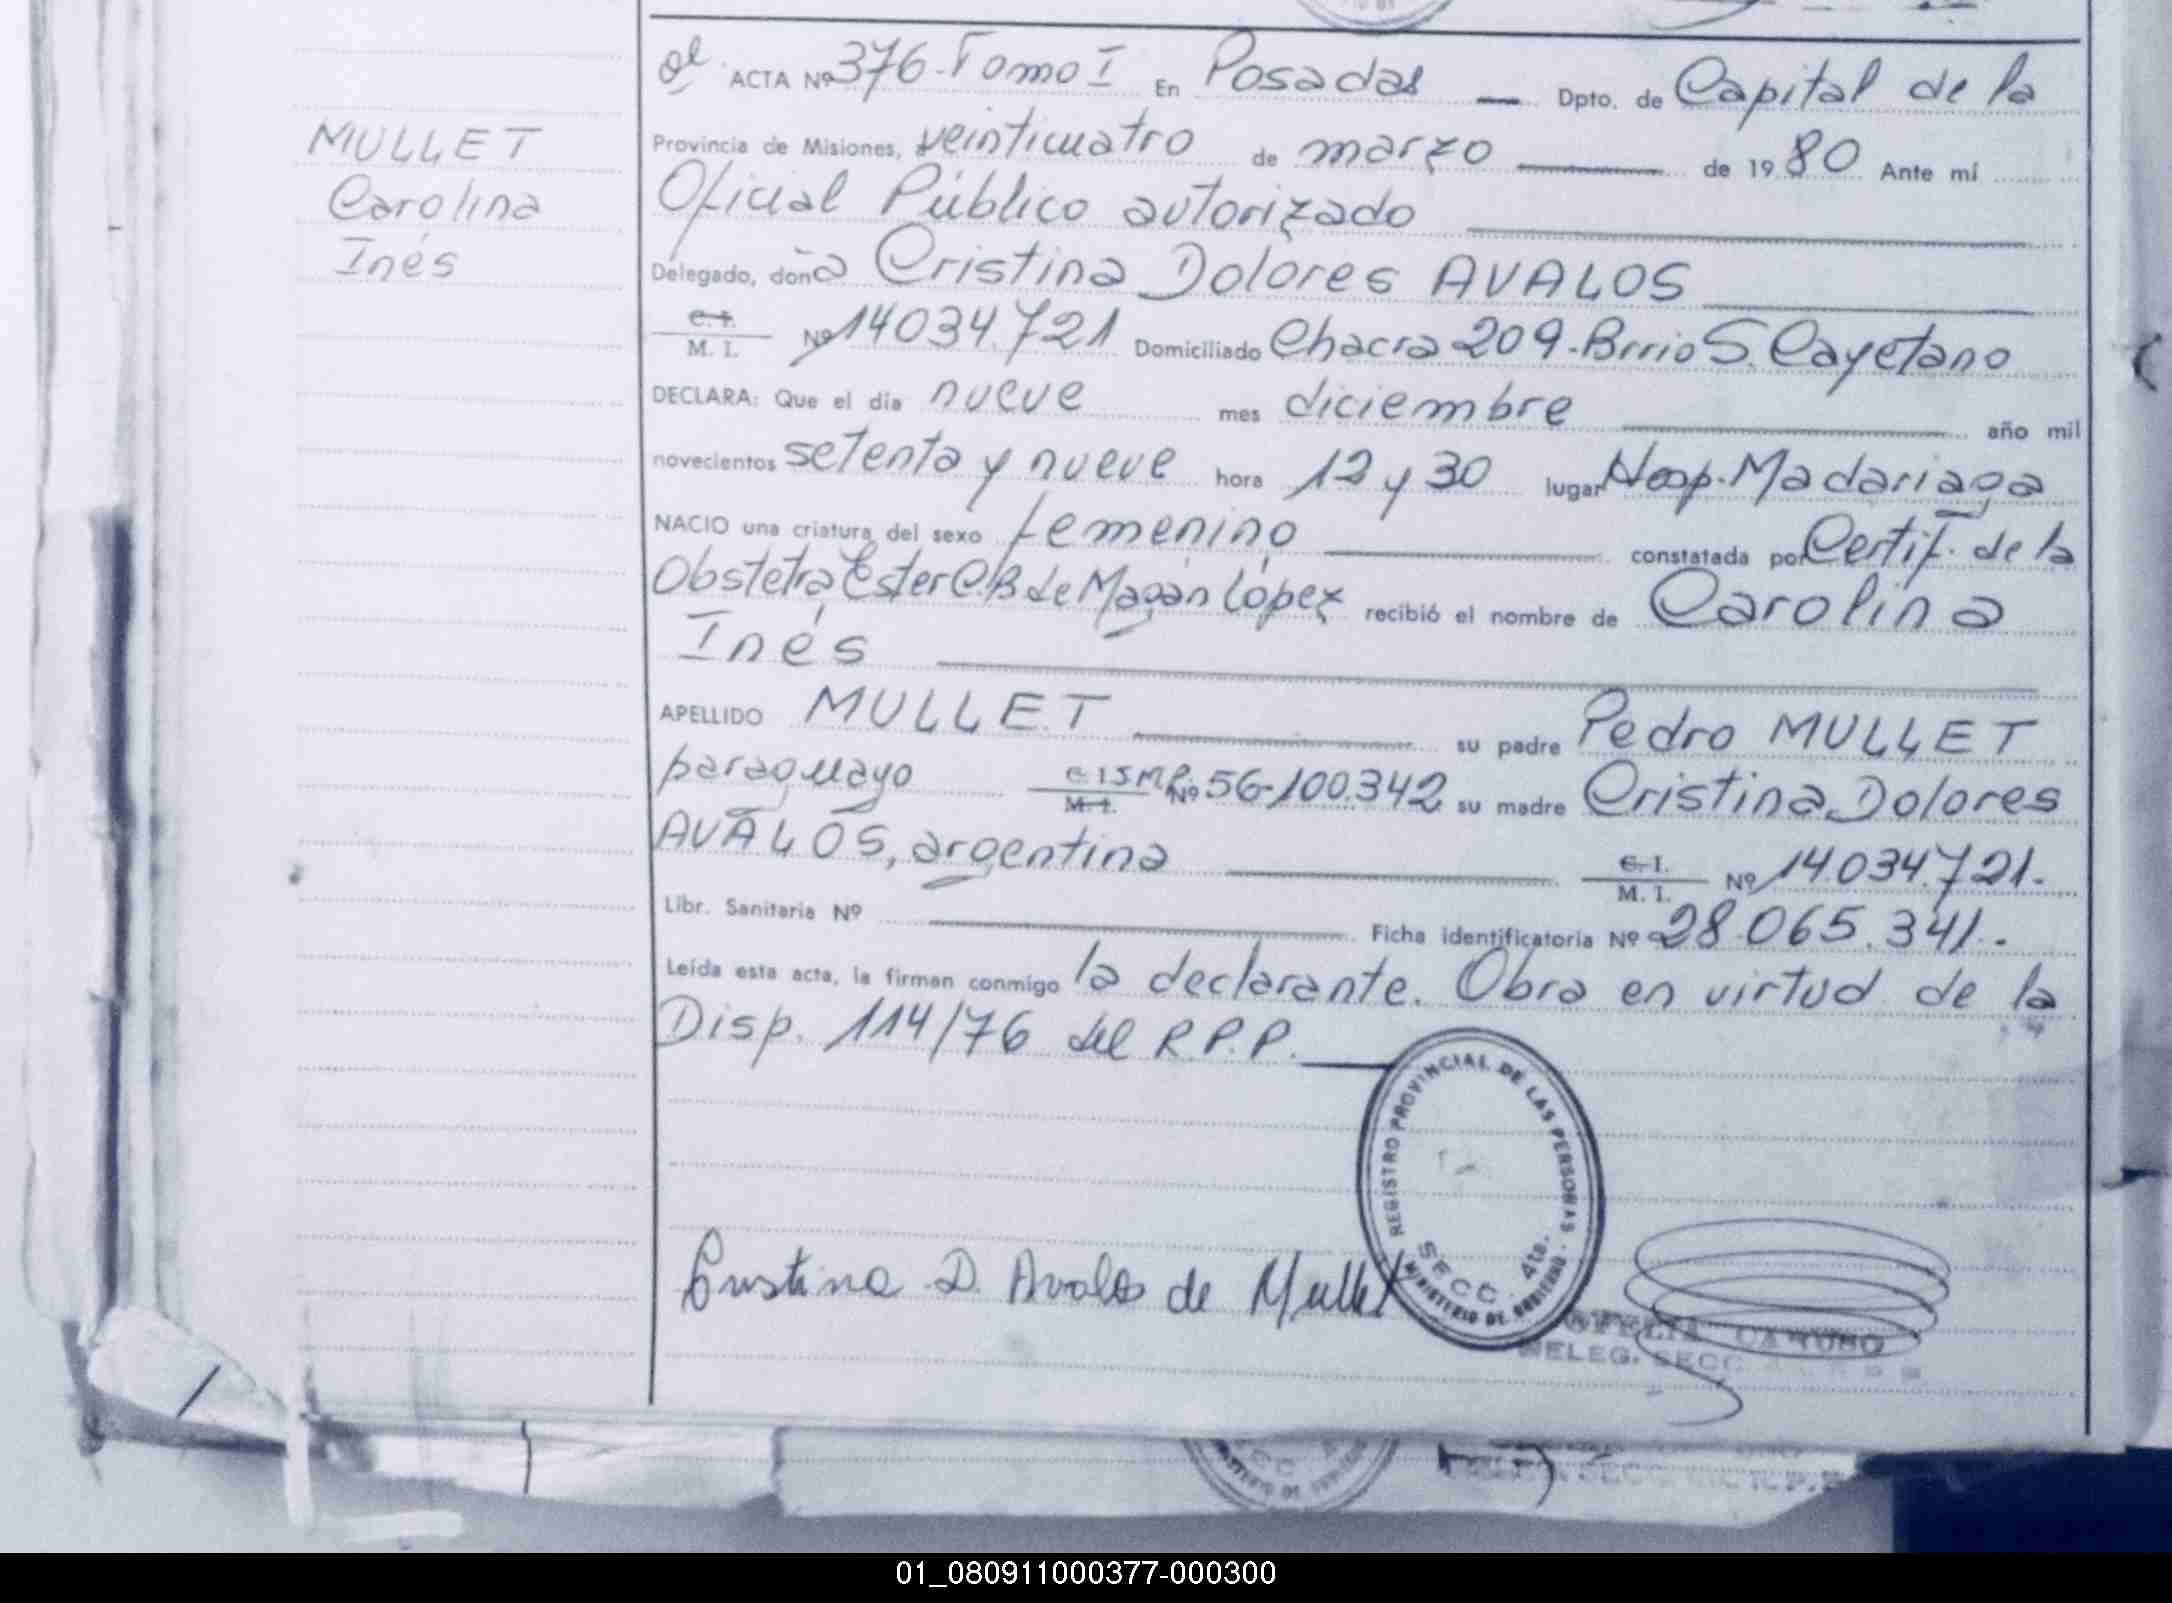 MULLET
Carolina
Inés
ACTA Nº 376-Tomo I En Posadas — Dpto. de Capital de la
Provincia de Misiones, a veinticuatro de marzo de 1980 Ante mí
Oficial Público autorizado
Delegado, doña Cristina Dolores AVALOS
C. I. M. I. Nº 14034.721 Domiciliado Chacra 209-Brrio S. Cayetano
DECLARA: Que el día nueve mes diciembre año mil
novecientos setenta y nueve hora 12 y 30 lugar Hosp. Madariaga
NACIO una criatura del sexo femenino constatada por Certif. de la
Obstetra Ester C.B de Magán López recibió el nombre de Carolina
Inés
APELLIDO MULLET su padre Pedro MULLET
paraguayo C I S M P. M. I. Nº 56-100.342 su madre Cristina Dolores
AVALOS, argentina C. I. M. I. Nº 14.034.721.
Libr. Sanitaria Nº Ficha identificatoria Nº 28 065.341.-
Leída esta acta, la firman conmigo la declarante. Obra en virtud de la
Disp. 114/76 del R.P.P.
REGISTRO PROVINCIAL DE LAS PERSONAS
SECC. 4ta.
MINISTERIO DE GOBIERNO
Cristina D. Avalos de Mullet
OFELIA CARUSO
DELEG. SECC
01_080911000377-000300